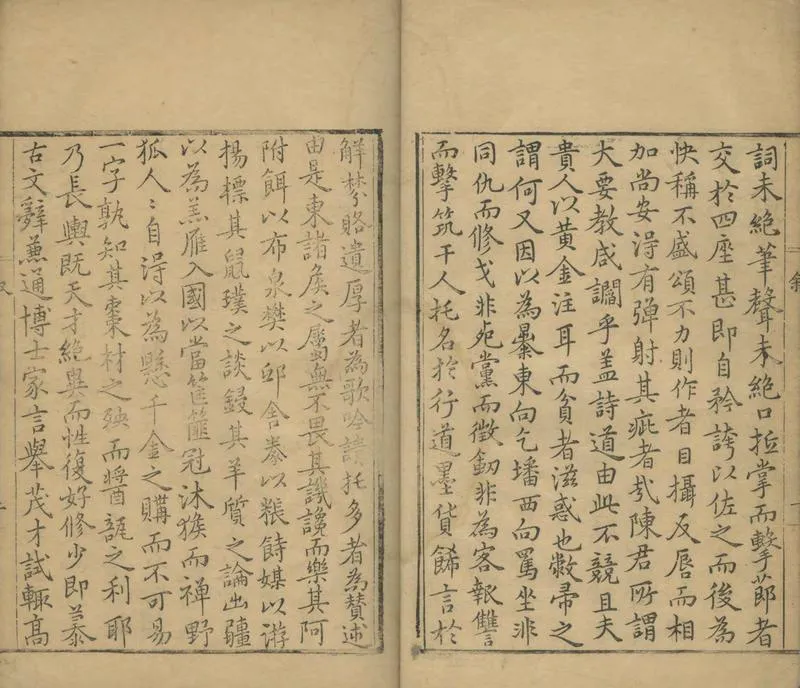 詞未絕筆聲未絕口抵掌而擊莭者
交於四座甚即自矜誇以佐之而後為
快稱不盛頌不力則作者目攝反唇而相
加尚安淂有弹射其疵者㢤陳君所謂
大要教咸讕乎盖詩道由此不競且夫
貴人以黄金注耳而貧者滋惑也敝帚之
謂何又因以為暴東向乞墦西向罵坐非
同仇而修戈非宛黨而徵釼非為客報讐
而擊筑干人托名於行道墨貨餙言於
解棼賂遺厚者為歌吟請托多者為贊述
由是東諸矦之屬無不畏其譏讒而樂其阿
附餌以布泉樊以邱舍豢以粻餙媒以游
揚標其鼠璞之談鋟其羊質之論出疆
以為羔雁入國以當筐篚冠沐猴而禅野
狐人〻自淂以為懸千金之購而不可易
一字孰知其棗材之殃而醬瓿之利耶
乃長輿既天才絕異而性復好修少即慕
古文辭兼通博士家言舉茂才試輒高